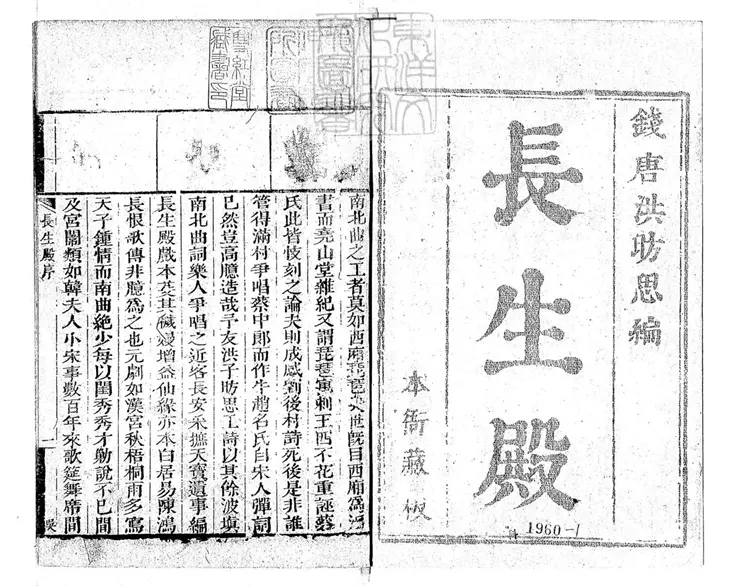 錢唐洪昉思編
長生殿
本衙藏板
1960-1
南北曲之工者莫如西廂琵琶世旣目西廂爲
書而堯山堂雜紀又謂琵琶寓刺王四不花重誣蔡
氏此皆忮刻之論夫則成感劉後村詩死後是非誰
管得滿村爭唱蔡中郎而作牛趙名氏自宋人彈詞
已然豈高臆造哉予友洪子昉思工詩以其餘波塡
南北曲詞樂人爭唱之近客長安采摭天寶遺事編
長生殿戲本芟其穢嫚增益仙緣亦本白居易陳鴻
長恨歌傳非臆爲之也元劇如漢宮秋梧桐雨多寫
天子鍾情而南曲絶少每以閨秀秀才勦說不已間
及宮闈類如韓夫人小宋事數百年來歌筵舞席間
長生殿序
一